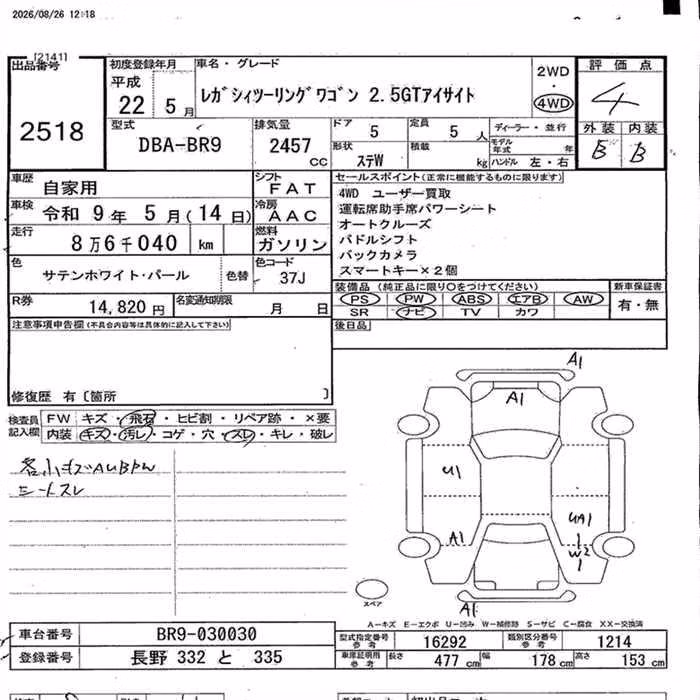 2026/08/26 12:18
[2141]
出品番号
2518
初度登録年月
平成
22 5月
車名・グレード
レガシィツーリングワゴン 2.5GTアイサイト
2WD
・
4WD
評価点
4
外装 内装
B B
型式
DBA-BR9
排気量
2457 CC
ドア 5
定員 5人
形状 ステW
積載 kg
ディーラー・並行
モデル年式 年
ハンドル 左・右
車歴 自家用
シフト FAT
車検 令和 9年 5月(14日)
冷房 AAC
走行 8万6千040 km
燃料 ガソリン
色 サテンホワイト・パール
色替
色コード 37J
R券 14,820円
名変通知期限 月 日
セールスポイント(正常に機能するものに限ります)
4WD ユーザー買取
運転席助手席パワーシート
オートクルーズ
パドルシフト
バックカメラ
スマートキー×2個
装備品(純正品に限り○をつけてください)
PS PW ABS エアB AW
SR ナビ TV カワ
新車保証書
有・無
後日品
注意事項申告欄(不具合内容等は具体的に記入して下さい)
修復歴 有〔箇所 〕
検査員記入欄
FW キズ・飛石・ヒビ割・リペア跡・×要
内装 キズ・汚レ・コゲ・穴・スレ・キレ・破レ
各小キズAUBPW
シートスレ
A1
A1
U1
A1
UA1
W2
A1
スペア
A－キズ E－エクボ U－凹み W－補修跡 S－サビ C－腐食 XX－交換済
車台番号 BR9-030030
登録番号 長野 332 と 335
型式指定番号 参考 16292
類別区分番号 参考 1214
車庫証明用 参考 長さ 477cm 幅 178cm 高さ 153cm